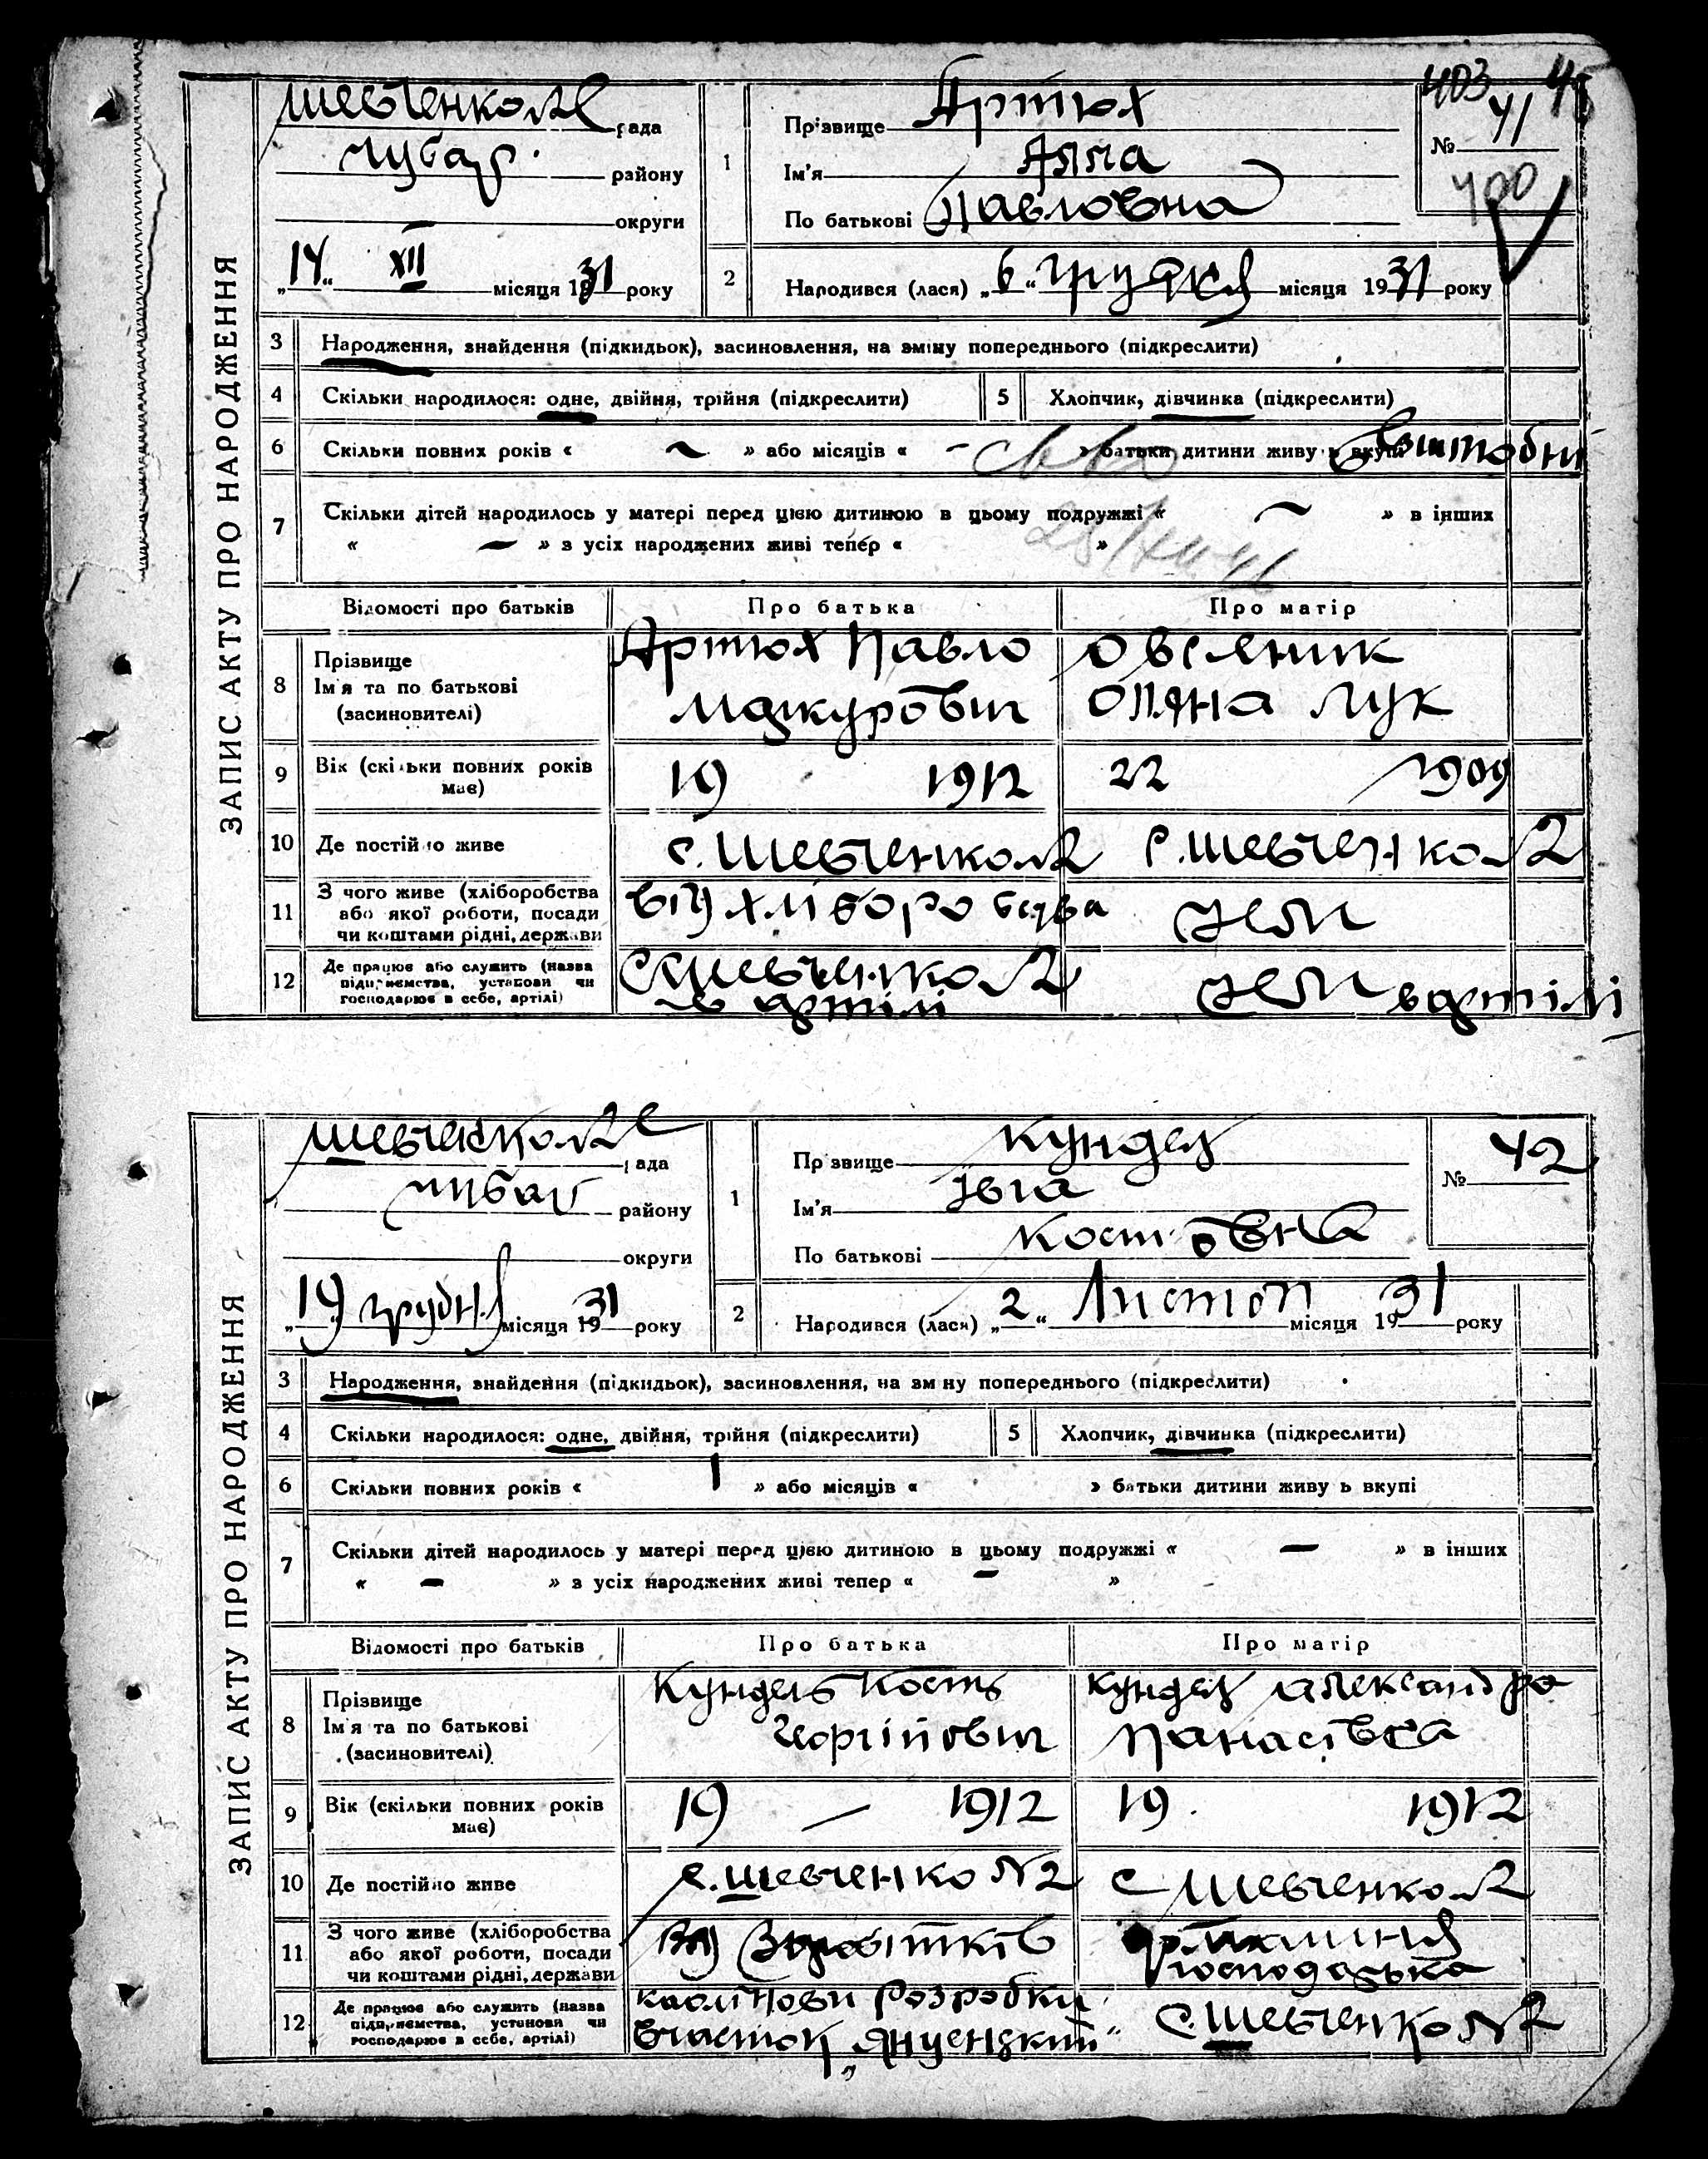 ЗАПИС АКТУ ПРО НАРОДЖЕННЯ
403 45
Шевченко №2 рада
Чубар. району
округи
„14“ XII місяця 1931 року
1
Прізвище Артюх
Ім'я Алла
По батькові Павловна
№ 41
400
2
Народився (лася) „6“ грудня місяця 1931 року
3 Народження, знайдення (підкидьок), засиновлення, на зміну попереднього (підкреслити)
4 Скільки народилося: одне, двійня, трійня (підкреслити)
5 Хлопчик, дівчинка (підкреслити)
6 Скільки повних років « ~ » або місяців « - » батьки дитини живуть вкупі
7 Скільки дітей народилось у матері перед цією дитиною в цьому подружжі « ~ » в інших
« — » з усіх народжених живі тепер « »
Відомості про батьків Про батька Про матір
8 Прізвище
Ім'я та по батькові
(засиновителі)
Артюх Павло
Овсяник
Оляна Лук
9 Вік (скільки повних років
має)
19 1912
22 1909
10 Де постійно живе
с. Шевченко №2
с. Шевченко №2
11 З чого живе (хліборобства
або якої роботи, посади
чи коштами рідні, держави
від хліборобства
12 Де працює або служить (назва
підприємства, установи чи
господарює в себе, артілі)
с Шевченко №2
в артілі
в артілі
ЗАПИС АКТУ ПРО НАРОДЖЕННЯ
Шевченко №2 рада
Чубар району
округи
„19“ грудня місяця 1931 року
1
Прізвище Кундель
Ім'я Івга
По батькові Костьовна
№ 42
2
Народився (лася) „2“ Листоп місяця 1931 року
3 Народження, знайдення (підкидьок), засиновлення, на зміну попереднього (підкреслити)
4 Скільки народилося: одне, двійня, трійня (підкреслити)
5 Хлопчик, дівчинка (підкреслити)
6 Скільки повних років « 1 » або місяців « » батьки дитини живуть вкупі
7 Скільки дітей народилось у матері перед цією дитиною в цьому подружжі « — » в інших
« — » з усіх народжених живі тепер « — »
Відомості про батьків Про батька Про матір
8 Прізвище
Ім'я та по батькові
(засиновителі)
Кундель Кость
Георгійович
Кундель Александра
Панасівна
9 Вік (скільки повних років
має)
19 — 1912
19. 1912
10 Де постійно живе
с. Шевченко №2
с Шевченко №2
11 З чого живе (хліборобства
або якої роботи, посади
чи коштами рідні, держави
від Заробітків
господарька
12 Де працює або служить (назва
підприємства, установи чи
господарює в себе, артілі)
каолінови розробки
участок „Янценський“
с. Шевченко №2